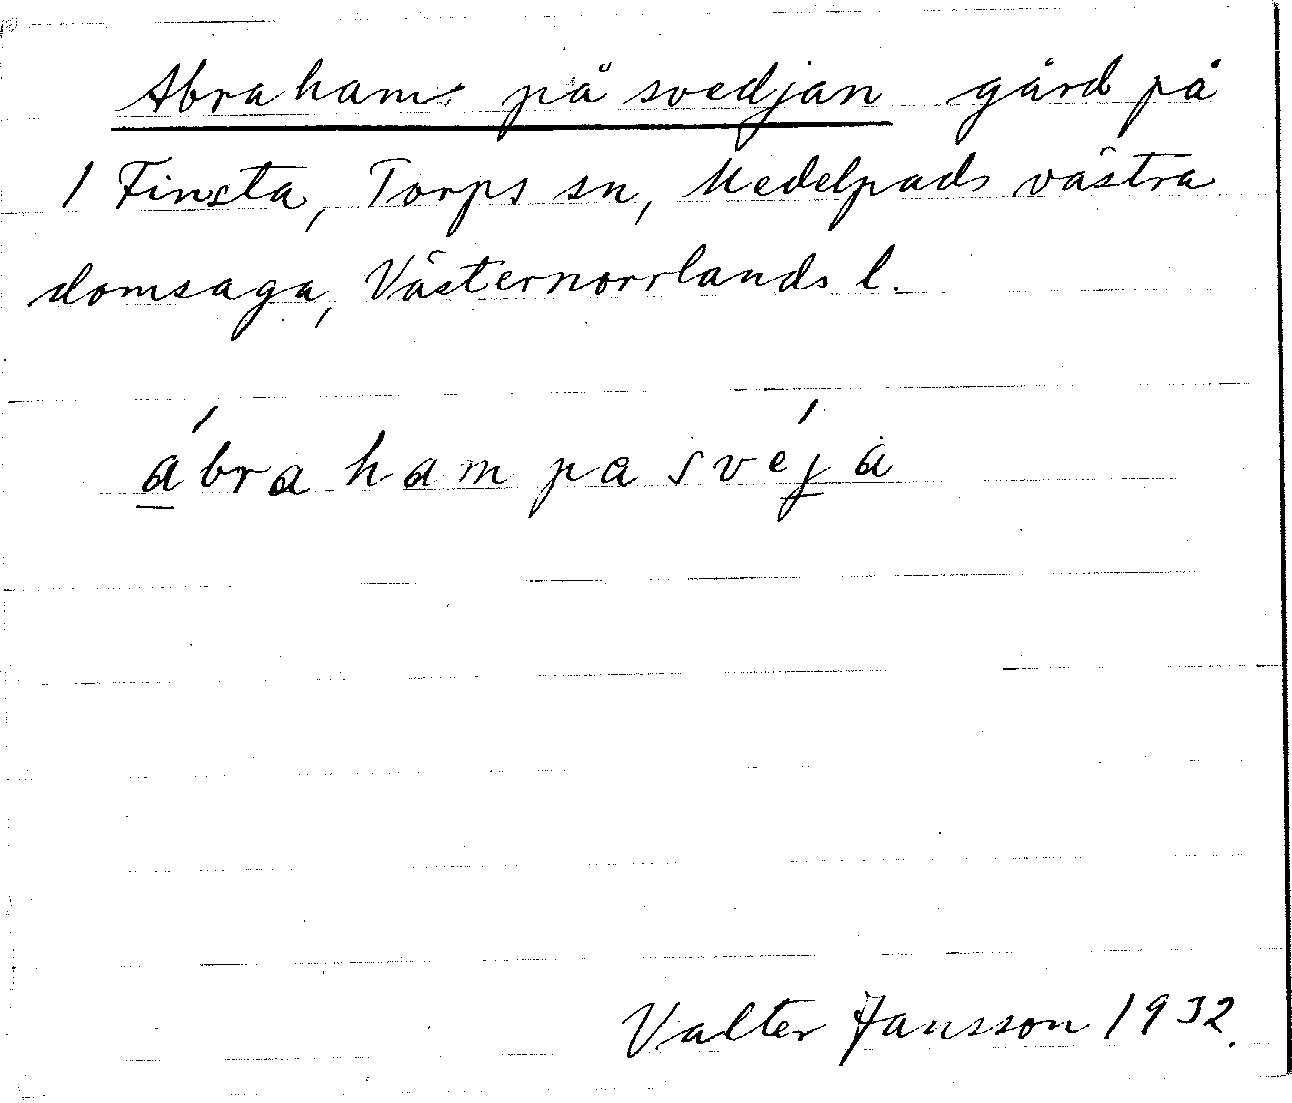 Abraham på svedjan gård på
1 Finsta, Torps sn, Medelpads västra
domsaga, Västernorrlands l.
ábra ham pa svéja
Valter Jansson 1932.